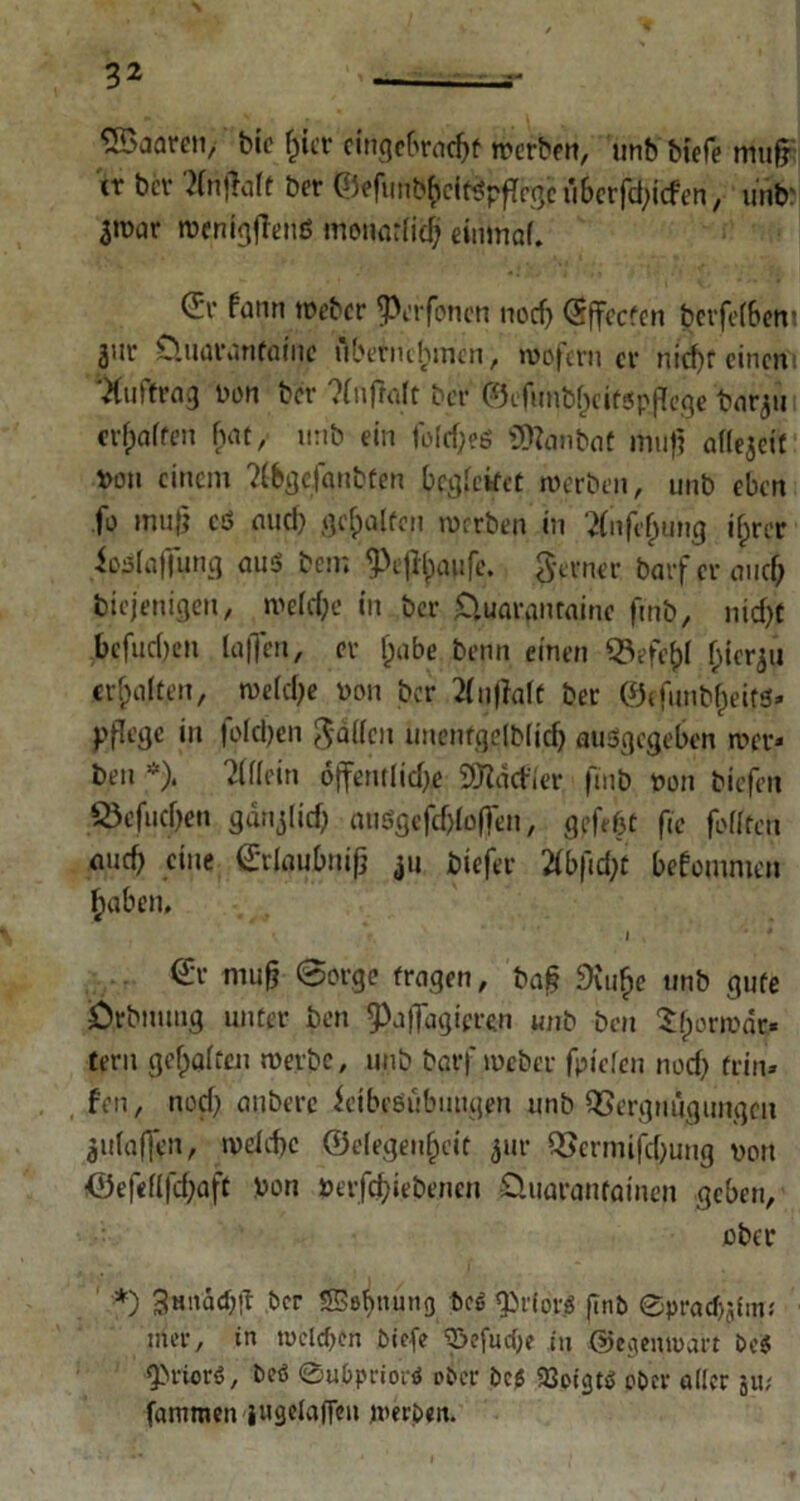 32
Waaren, die hier eingebracht werden, und diese muß
er der Anstalt der Gesundheitspflege überschicken, und
zwar wenigstens monatlich einmal.
Er kann weder Personen noch Effecten derselben
zur Quarantaine übernehmen, wofern er nicht einen
Auftrag von der Anstalt der Gesundheitspflege darzu
erhalten hat, und ein solches Mandat muß allezeit
von einem Abgesandten begleitet werden, und eben
so muß es auch gehalten werden in Ansehung ihrer
Loslassung aus dem Pesthause. Ferner darf er auch
diejenigen, welche in der Quarantaine sind, nicht
besuchen lassen, er habe denn einen Befehl hierzu
erhalten, welche von der Anstalt der Gesundheits-
pflege in solchen Fällen unentgeldlich ausgegeben wer-
den *). Allein öffentliche Mäckler sind von diesen
Besuchen gänzlich ausgeschlossen, gesetzt sie sollten
auch eine Erlaubniß zu dieser Absicht bekommen
haben.
Er muß Sorge tragen, daß Ruhe und gute
Ordnung unter den Passagieren und den Thorwär-
tern gehalten werde, und darf weder spielen noch trin-
ken, noch andere Leibesübungen und Vergnügungen
zulassen, welche Gelegenheit zur Vermischung von
Gesellschaft von verschiedenen Quarantainen geben,
oder
*) Zunächst der Wohnung des Priors sind Sprachzim-
mer, in welchen diese Besuche in Gegenwart des
Priors, des Subpriors oder des Voigts oder aller zu-
sammen zugelassen werden.